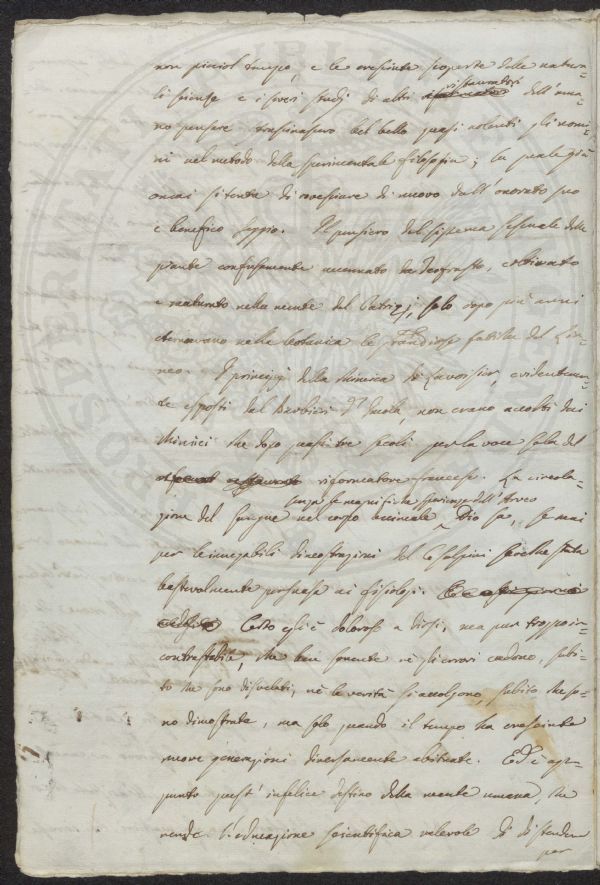 non picciol tempo, e le cresciute scoperte delle natura-
li scienze e i severi studj di altri ristauratori dell'uma-
no pensare trascinassero bel bello quasi nolenti gli uomi-
ni nel metodo della sperimentale filosofia; la quale già
omai si tenta di rovesciare di nuovo dall'onorato suo
e benefico seggio. Il pensiero del sistema sessuale delle
piante confusamente accennato da Teofrasto, coltivato
e maturato nella mente del Patrizj, solo dopo più anni
chiamavano nella botanica le grandiose fabbriche del Lin-
neo. I principj della chimica di Lavoisier, evidentemen-
te esposti dal Barbieri d'Imola, non erano accolti dai
chimici che dopo quasi tre secoli per la voce sola del
riformatore francese. La circola-
zione del sangue nel corpo animale senza le magnifiche sperienze dell'Arveo Dio sa, se mai
per le innegabili dimostrazioni del Cesalpini sarebbe stata
bastevolmente persuasa ai fisiologi.
Certo egli è doloroso a dirsi, ma pur troppo in-
contrastabile, che ben sovente nè gli errori cadono, subi-
to che sono disvelati, nè le verità si accolgono, subito che so-
no dimostrate, ma solo quando il tempo ha cresciute
nuove generazioni diversamente abituate. Ed è ap-
punto quest'infelice destino della mente umana, che
rende l'educazione scientifica valevole di distendere
per